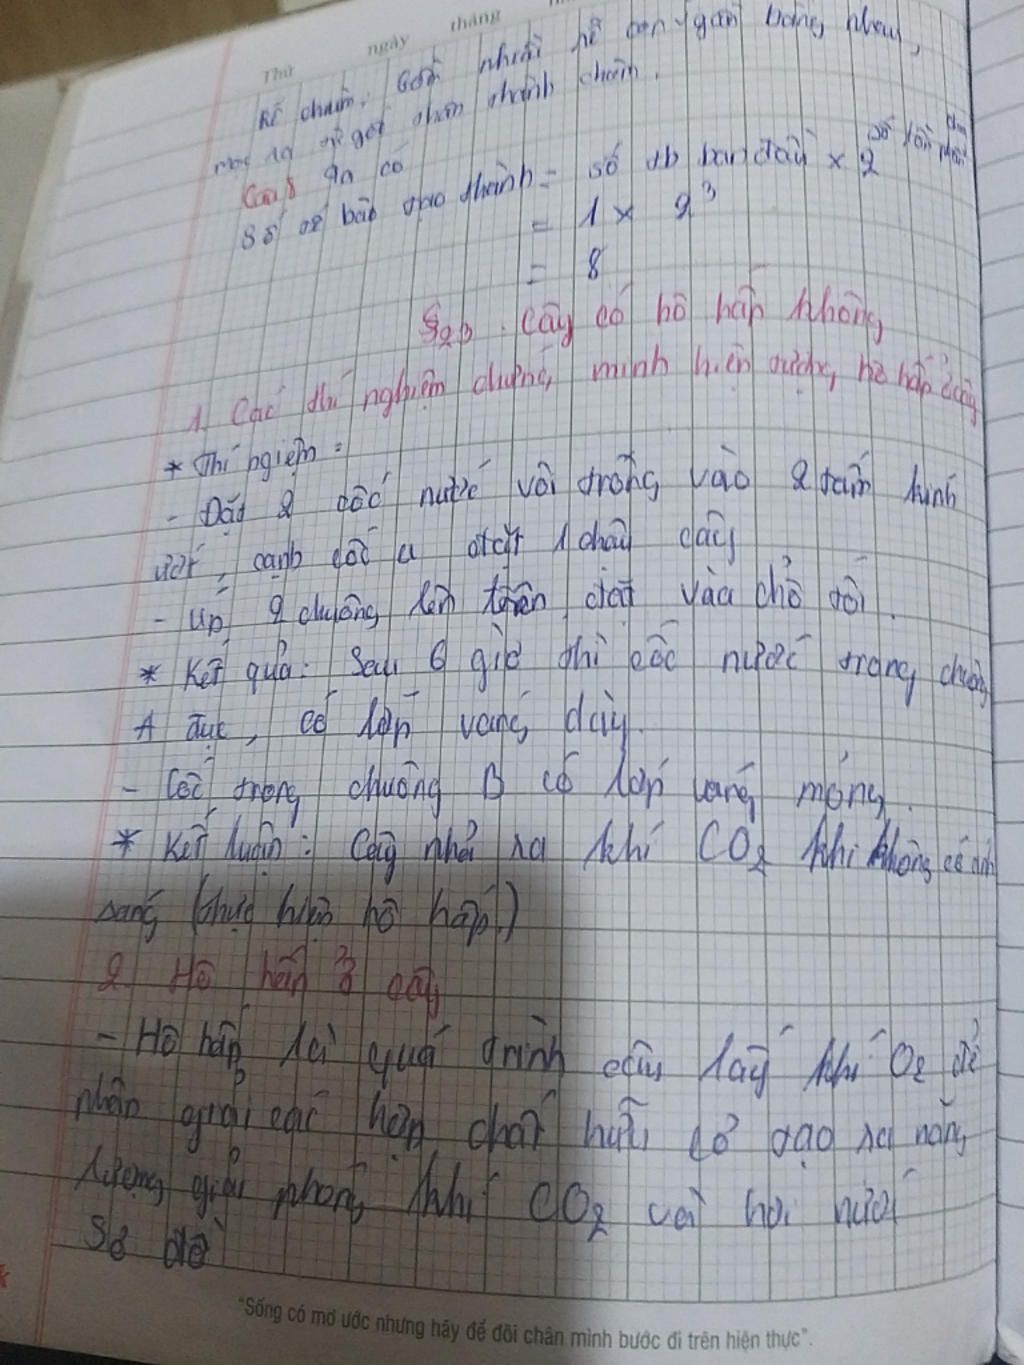 Thứ ngày tháng
Rễ chùm: Gồm nhiều rễ con gần bằng nhau,
mọc ra từ gốc thân thành chùm.
Câu 8 Ta có
Số tế bào tạo thành = số tb ban đầu x 2 số lần phân
= 1 x 2³
= 8
Cây có hô hấp không
1. Các thí nghiệm chứng minh hiện tượng hô hấp ở cây
* Thí ngiệm:
- Đặt 2 cốc nước vôi trong vào 2 tấm kính
ướt, cạnh cốc a đặt 1 chậu cây
- Úp 2 chuông lên trên đặt vào chỗ tối.
* Kết quả: Sau 6 giờ thì cốc nước trong chuông
A đục, có lớp váng dày.
- Cốc trong chuông B có lớp váng mỏng.
* Kết luận: Cây nhả ra khí CO₂ khi không có ánh
sáng (thực hiện hô hấp.)
2 Hô hấp ở cây
- Hô hấp là quá trình cây lấy khí O₂ để
phân giải các hợp chất hữu cơ tạo ra năng
lượng giải phóng khí CO₂ và hơi nước
Sơ đồ
"Sống có mơ ước nhưng hãy để đôi chân mình bước đi trên hiện thực".